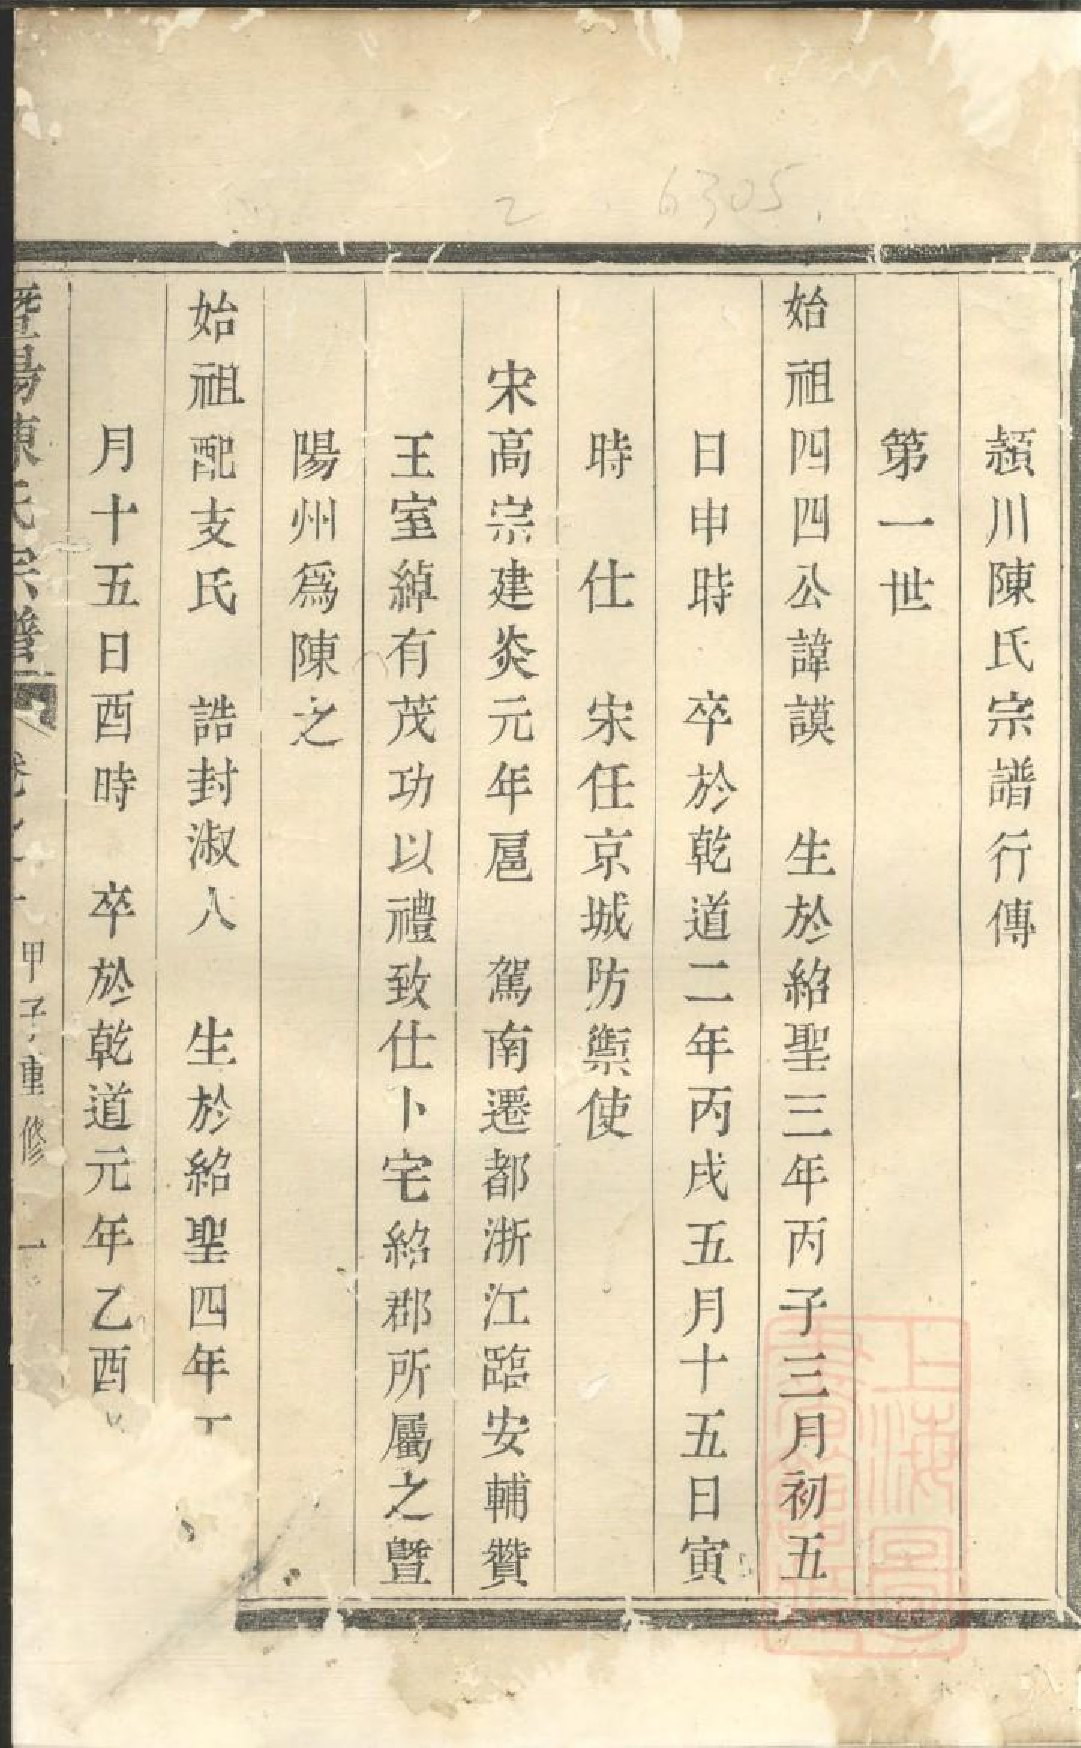 潁川陳氏宗譜行傳
第一世
始祖四四公諱謨 生於紹聖三年丙子三月初五
日申時 卒於乾道二年丙戌五月十五日寅
時 仕 宋任京城防禦使
宋高宗建炎元年扈 駕南遷都浙江臨安輔贊
王室綽有茂功以禮致仕卜宅紹郡所屬之暨
陽州爲陳之
始祖配支氏 誥封淑人 生於紹聖四年丁
月十五日酉時 卒於乾道元年乙酉
暨陽陳氏宗譜 卷之 甲子重修 一
2 6305
上海圖書館藏